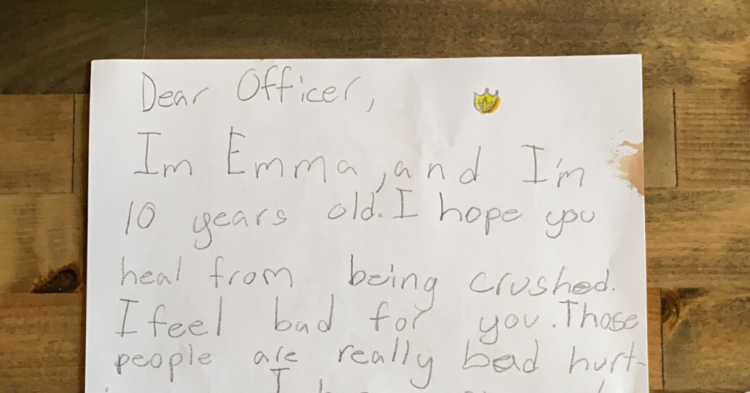 Dear Officer,
Im Emma, and I'm
10 years old. I hope you
heal from being crushed.
I feel bad for you. Those
people are really bad hurt-